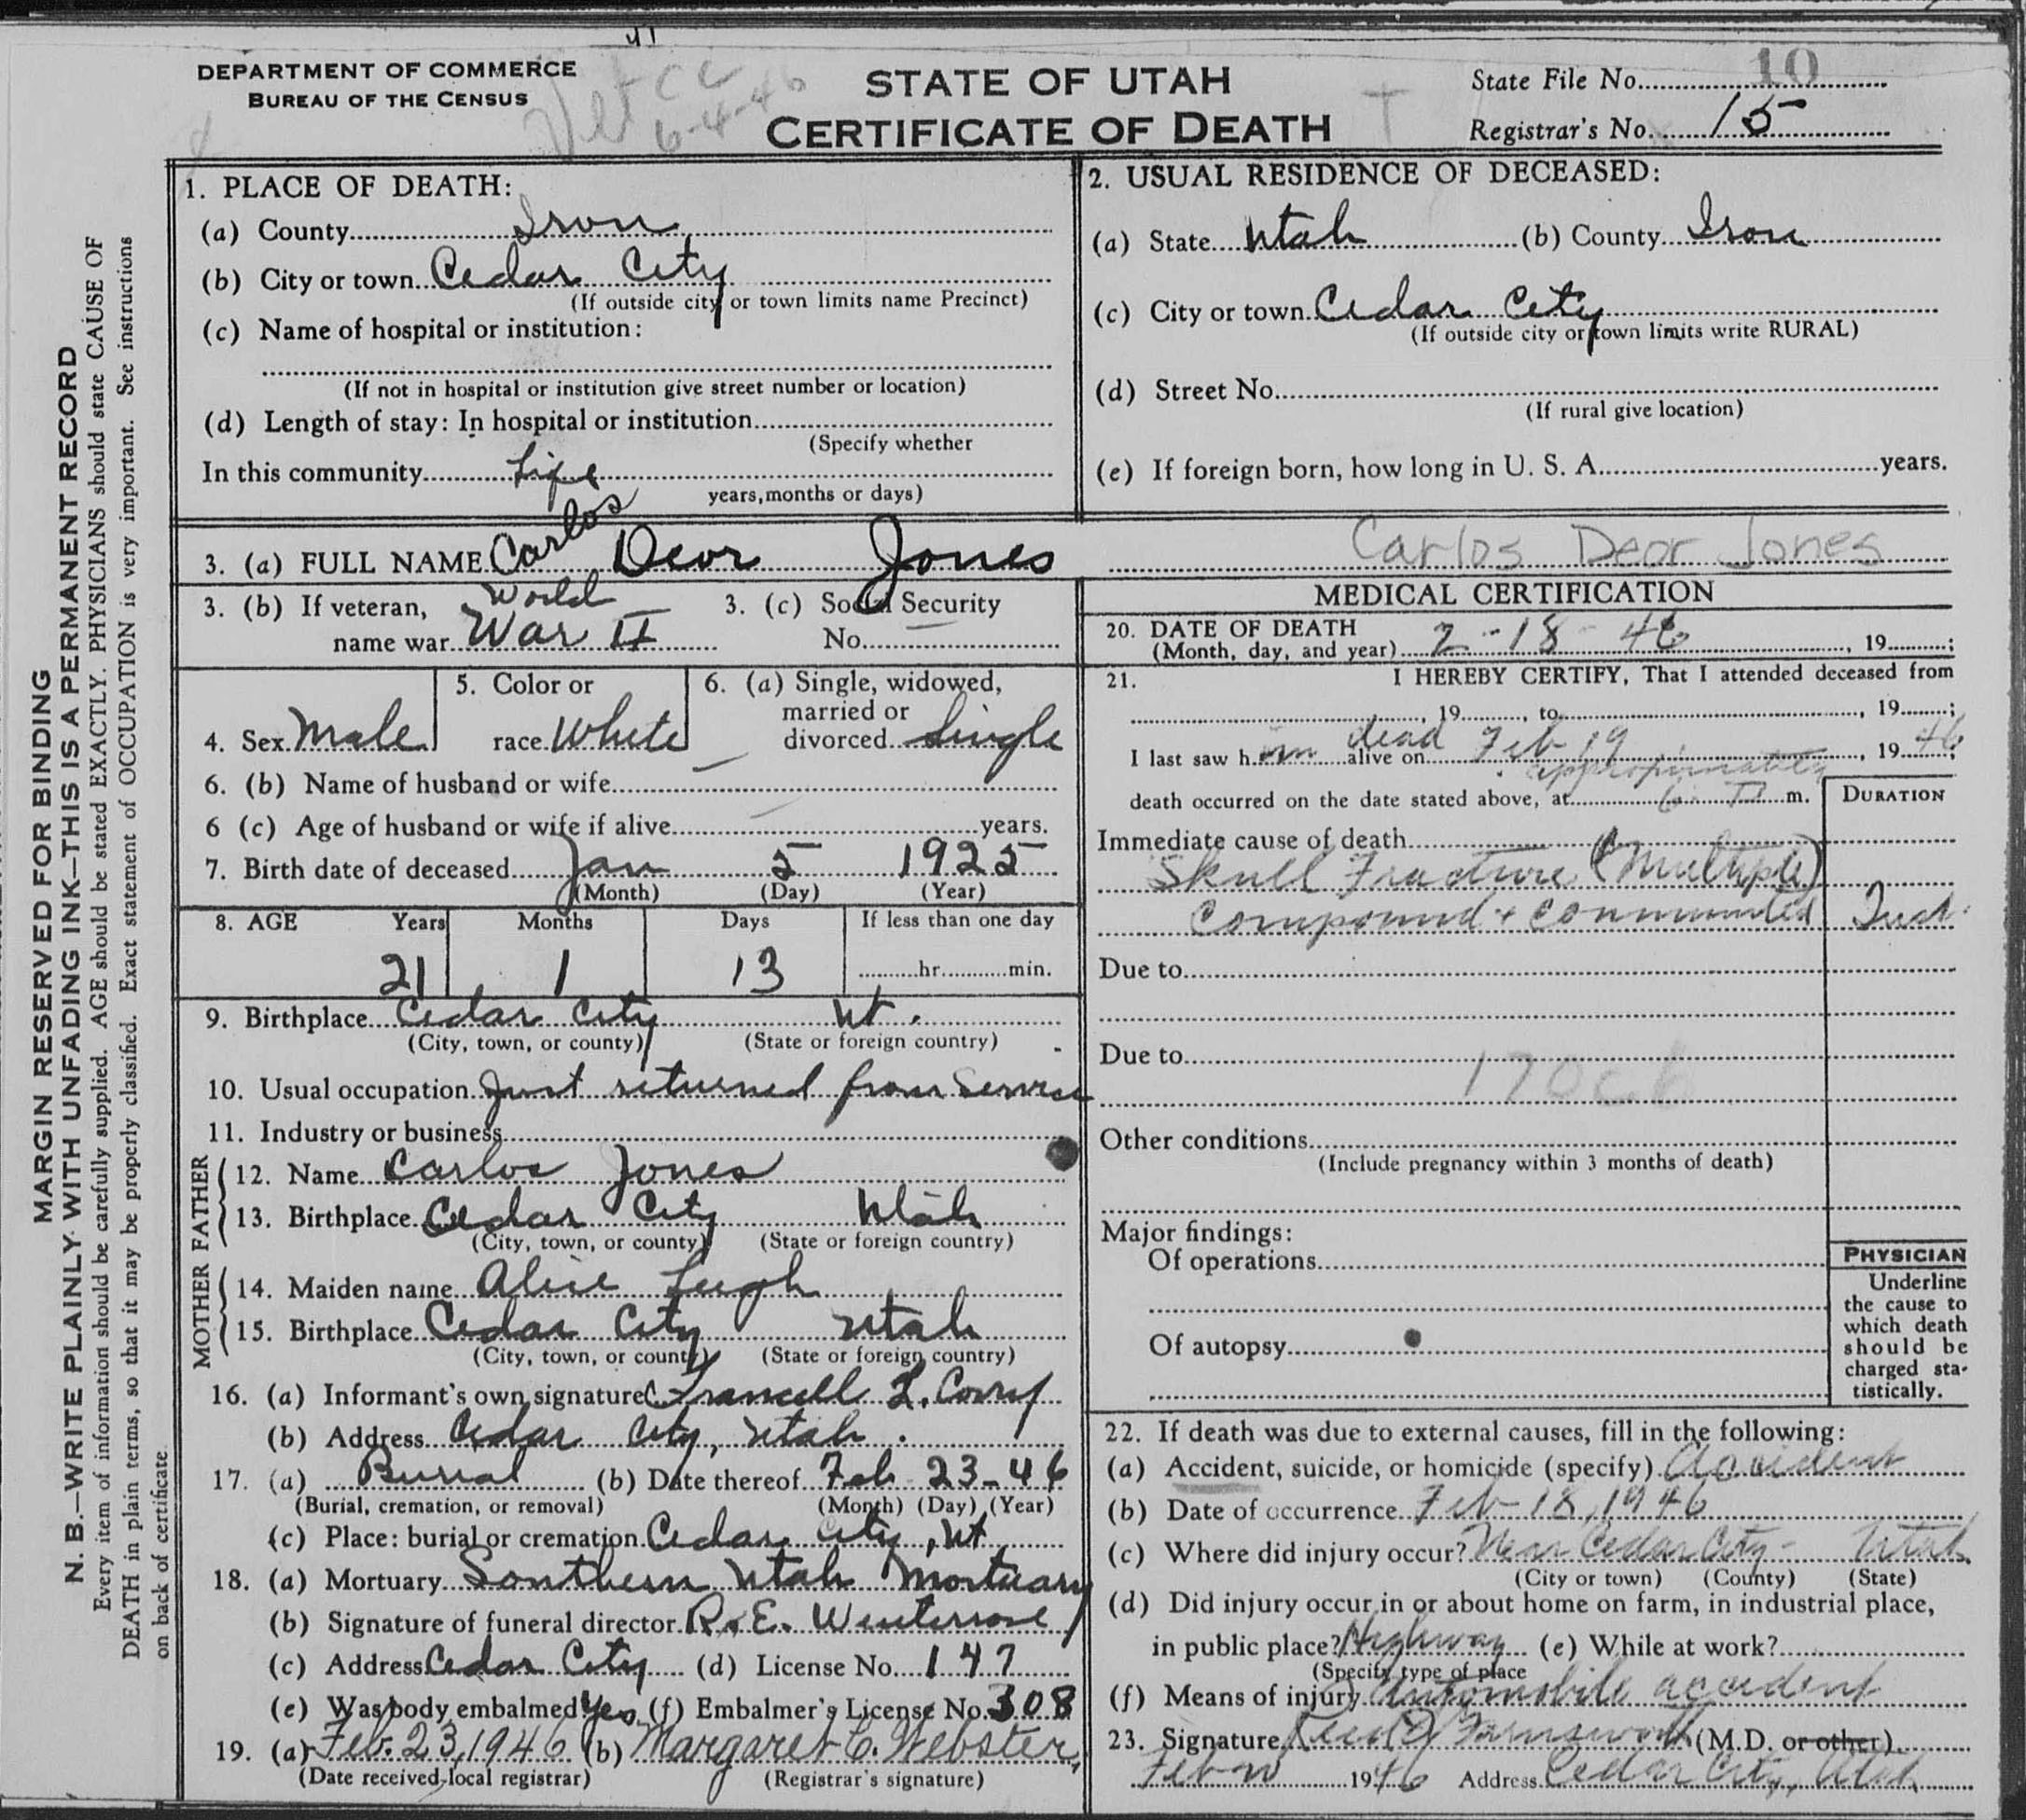 DEPARTMENT OF COMMERCE
BUREAU OF THE CENSUS
Vet CC
6-4-46
STATE OF UTAH
CERTIFICATE OF DEATH
State File No. 10
Registrar's No. 15
MARGIN RESERVED FOR BINDING
N. B.—WRITE PLAINLY WITH UNFADING INK—THIS IS A PERMANENT RECORD
Every item of information should be carefully supplied. AGE should be stated EXACTLY. PHYSICIANS should state CAUSE OF
DEATH in plain terms, so that it may be properly classified. Exact statement of OCCUPATION is very important. See instructions
on back of certificate.
1. PLACE OF DEATH:
(a) County Iron
(b) City or town Cedar City
(If outside city or town limits name Precinct)
(c) Name of hospital or institution:
(If not in hospital or institution give street number or location)
(d) Length of stay: In hospital or institution
(Specify whether
In this community Life
years, months or days)
2. USUAL RESIDENCE OF DECEASED:
(a) State Utah (b) County Iron
(c) City or town Cedar City
(If outside city or town limits write RURAL)
(d) Street No.
(If rural give location)
(e) If foreign born, how long in U. S. A. years.
3. (a) FULL NAME Carlos Devr Jones Carlos Deor Jones
3. (b) If veteran, name war World War II
3. (c) Social Security No. —
4. Sex Male
5. Color or race White
6. (a) Single, widowed, married or divorced Single
6. (b) Name of husband or wife —
6 (c) Age of husband or wife if alive years.
7. Birth date of deceased Jan 5 1925
(Month) (Day) (Year)
8. AGE Years Months Days If less than one day
21 1 13 hr. min.
9. Birthplace Cedar City Ut.
(City, town, or county) (State or foreign country)
10. Usual occupation Just returned from Service
11. Industry or business
FATHER
12. Name Carlos Jones
13. Birthplace Cedar City Utah
(City, town, or county) (State or foreign country)
MOTHER
14. Maiden name Alice Leigh
15. Birthplace Cedar City Utah
(City, town, or county) (State or foreign country)
16. (a) Informant's own signature L. Corry
(b) Address Cedar City, Utah.
17. (a) Burial (b) Date thereof Feb 23-46
(Burial, cremation, or removal) (Month) (Day) (Year)
(c) Place: burial or cremation Cedar City, Ut
18. (a) Mortuary Southern Utah Mortuary
(b) Signature of funeral director R. E. Winterrose
(c) Address Cedar City (d) License No. 147
(e) Was body embalmed Yes (f) Embalmer's License No. 308
19. (a) Feb. 23, 1946 (b) Margaret C. Webster,
(Date received local registrar) (Registrar's signature)
MEDICAL CERTIFICATION
20. DATE OF DEATH
(Month, day, and year) 2-18-46, 19 ;
21. I HEREBY CERTIFY, That I attended deceased from
, 19 , to , 19 ;
I last saw him dead alive on Feb 19, 1946;
approximately
death occurred on the date stated above, at 6 m.
DURATION
Immediate cause of death
Skull Fracture (Multiple)
Compound & Comminuted Inst.
Due to
Due to
170c
Other conditions
(Include pregnancy within 3 months of death)
Major findings:
Of operations
Of autopsy
PHYSICIAN
Underline
the cause to
which death
should be
charged sta-
tistically.
22. If death was due to external causes, fill in the following:
(a) Accident, suicide, or homicide (specify) Accident
(b) Date of occurrence Feb 18, 1946
(c) Where did injury occur? Near Cedar City - Utah
(City or town) (County) (State)
(d) Did injury occur in or about home on farm, in industrial place,
in public place? Highway (e) While at work?
(Specify type of place
(f) Means of injury Automobile accident
23. Signature Farnsworth (M.D. or other)
Feb 1946 Address Cedar City, Utah